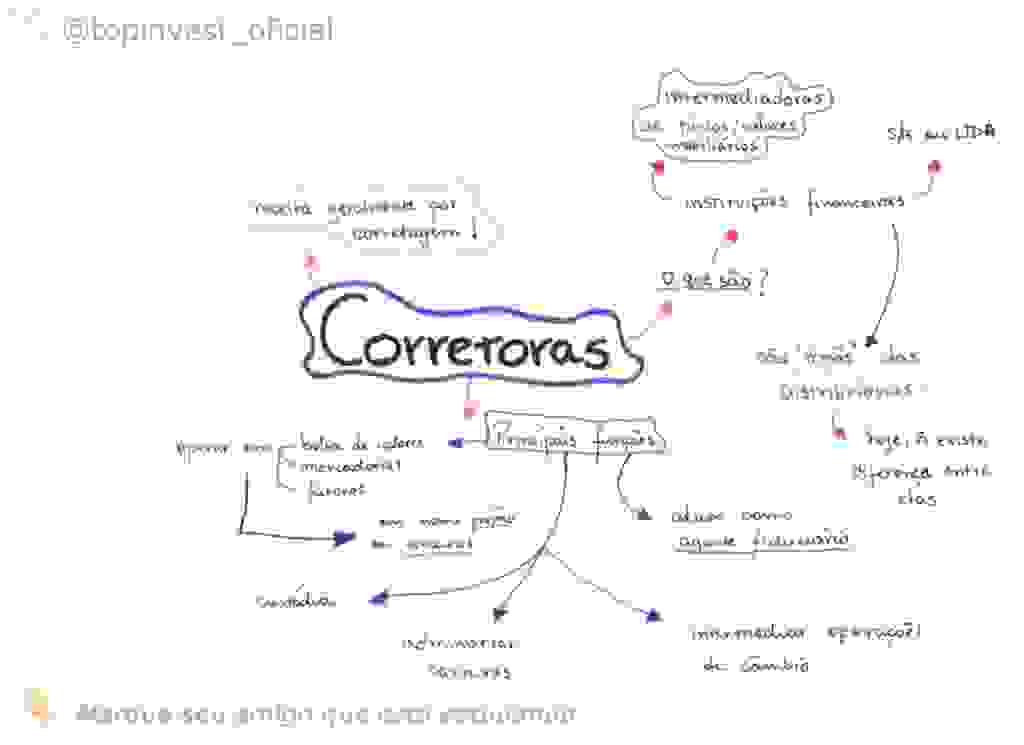 @topinvest_oficial
intermediadoras
de títulos/valores
mobiliários
S/A ou LTDA
instituições financeiras
receita
por
corretagem!
O que são?
Corretoras
são "irmãs" das
Distribuidoras
hoje, ñ existe
diferença entre
elas
Principais funções
operar em
bolsa de valores
mercadorias
futuros
em nome próprio
ou terceiros
atuar como
agente fiduciário
custódia
administrar
carteiras
intermediar operações
de câmbio
Marque seu amigo que está estudando